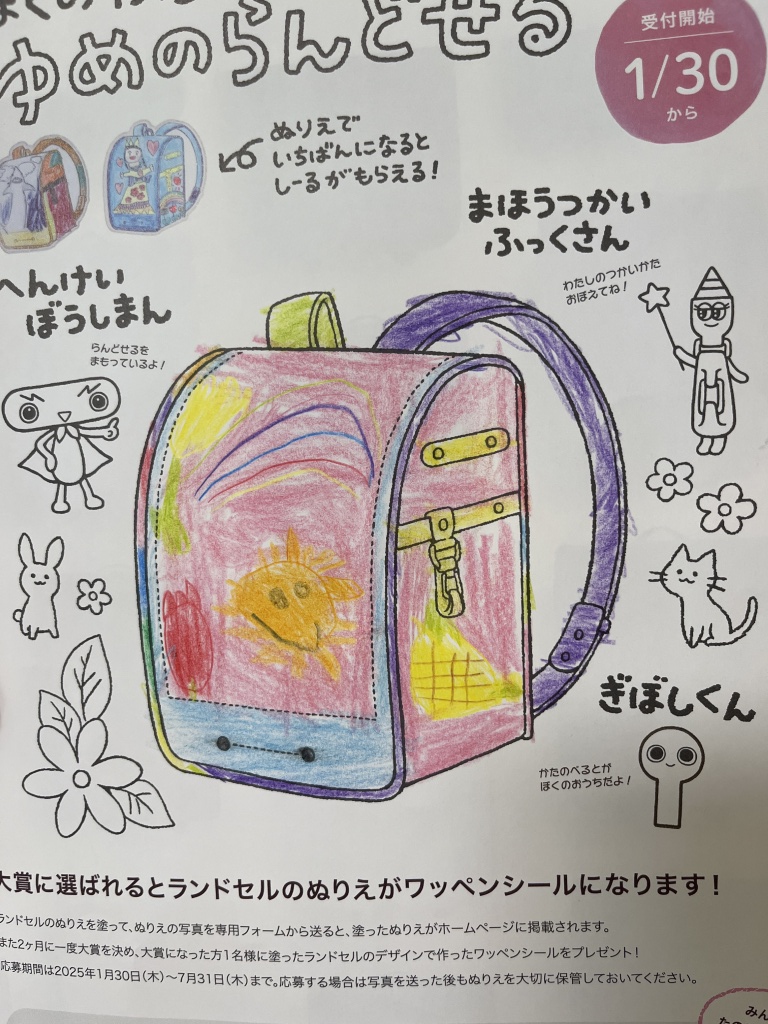 ゆめのらんどせる
受付開始
1/30
から
ぬりえで
いちばんになると
しーるがもらえる!
まほうつかい
ふっくさん
わたしのつかいかた
おぼえてね!
へんけい
ぼうしまん
らんどせるを
まもっているよ!
ぎぼしくん
かたのべるとが
ぼくのおうちだよ!
大賞に選ばれるとランドセルのぬりえがワッペンシールになります!
ランドセルのぬりえを塗って、ぬりえの写真を専用フォームから送ると、塗ったぬりえがホームページに掲載されます。
また2ヶ月に一度大賞を決め、大賞になった方1名様に塗ったランドセルのデザインで作ったワッペンシールをプレゼント!
応募期間は2025年1月30日(木)〜7月31日(木)まで。応募する場合は写真を送った後もぬりえを大切に保管しておいてください。